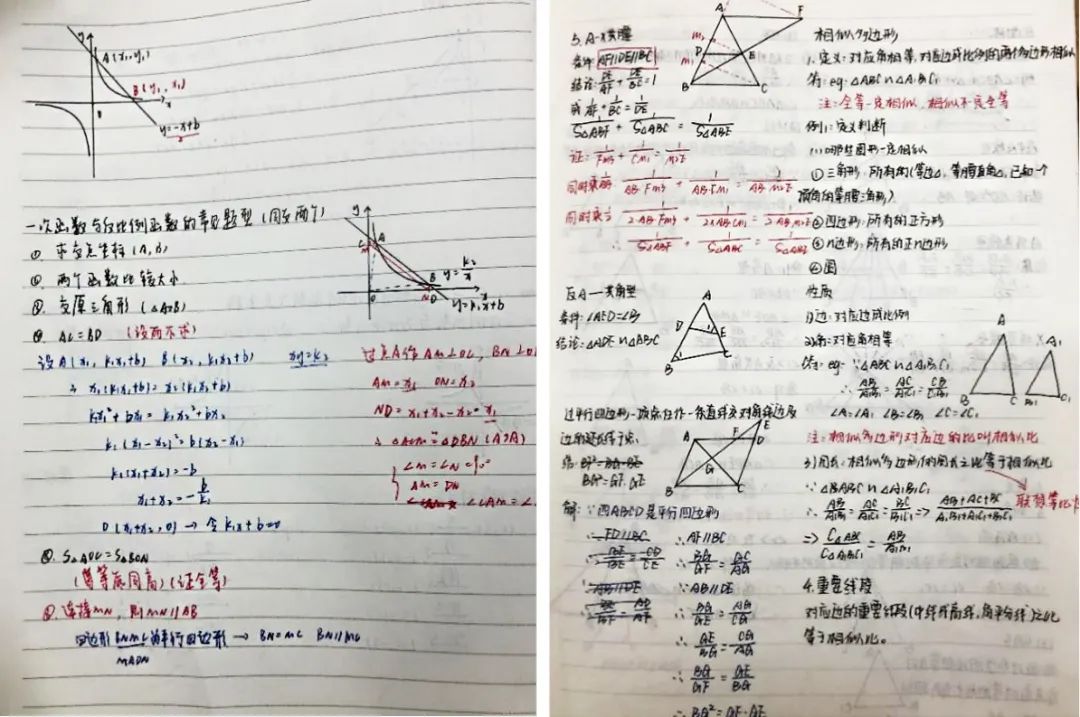 y
A(x₁,y₁)
B(y₁,x₁)
x
0
y=-x+b
一次函数与反比例函数的常见题型(同支两个)
①. 求交点坐标(A,B)
②. 两个函数比较大小
③. 交原三角形(△AOB)
④. AC=BD (设而不求)
y
C
A
M
B
N
D
0
x
y=k₂/x
y=k₁x+b
设A(x₁,k₁x₁+b) B(x₂,k₁x₂+b) xy=k₂
∴ x₁(k₁x₁+b)=x₂(k₁x₂+b)
k₁x₁²+bx₁=k₁x₂²+bx₂
k₁(x₁-x₂)²=b(x₂-x₁)
k₁(x₁+x₂)=-b
x₁+x₂=-b/k₁
D(x₁+x₂,0)→令k₁x+b=0
过点A作AM⊥OC,BN⊥O
AM=x₁ ON=x₂
ND=x₁+x₂-x₂=x₁
∴△ACM≌△DBN(ASA)
∠M=∠N=90°
AM=DN
∠CAM=∠
S△AOC=S△BON
(等底同高)(证全等)
连接MN,则MN∥AB
四边形BNMC为平行四边形→BN=MC BN∥MC
MADN
5. A-X共腰
条件:AF∥DE∥BC
结论:DE/AF+DE/BC=1
或1/AF+1/BC=1/DE
1/S△ABF+1/S△ABC=1/S△ABE
证:1/Fm₃+1/Cm₁=1/m₂E
同时乘
1/AB·Fm₃+1/AB·Cm₁=1/AB·m₂E
同时乘
∴1/S△ABF+1/S△ABC=1/S△ABE
A
F
D
E
B
C
反A-共角型
条件:∠AED=∠B
结论:△ADE∽△ABC
A
D
E
B
C
过平行四边形一顶点任作一条直线交对角线边及
边的延长线于点.
结:BG²=BG·BE
BG²=GF·GE
A
F
E
D
G
B
C
解:∵四ABCD是平行四边形
∴FD∥BC ∴AF∥BC
∴BG/GF=GC/AG
∴AB∥DE ∴AB∥DE
∴BG/GE=AG/CG
∴GE/BG=CG/AG
∴BG/GF=GE/BG
∴BG²=GF·GE
相似多边形
1. 定义:对应角相等,对应边成比例的两个多边形相似
eg:△ABC∽△A₁B₁C₁
注:全等一定相似,相似不一定全等
例1:定义判断
(1)哪些图形一定相似
①三角形:所有的(等边△,等腰直角△,已知一个
顶角的等腰三角形)
②四边形:所有的正方形
③n边形:所有的正n边形
④圆
性质
1)边:对应边成比例
2)角:对应角相等
eg:∵△ABC∽△A₁B₁C₁
∴AB/A₁B₁=AC/A₁C₁=CB/C₁B₁
∠A=∠A₁ ∠B=∠B₁ ∠C=∠C₁
A
B
C
A₁
B₁
C₁
注:相似多边形对应边的比叫相似比
3)周长:相似多边形的周长之比等于相似比
∵△ABC∽△A₁B₁C₁
∴AB/A₁B₁=AC/A₁C₁=BC/B₁C₁⇒AB+AC+BC/A₁B₁+A₁C₁+B₁C₁
联想等比
⇒C△ABC/C△A₁B₁C₁=AB/A₁B₁
4. 重要线段
对应边的重要线段(中线,高线,角平分线)之比
等于相似比。